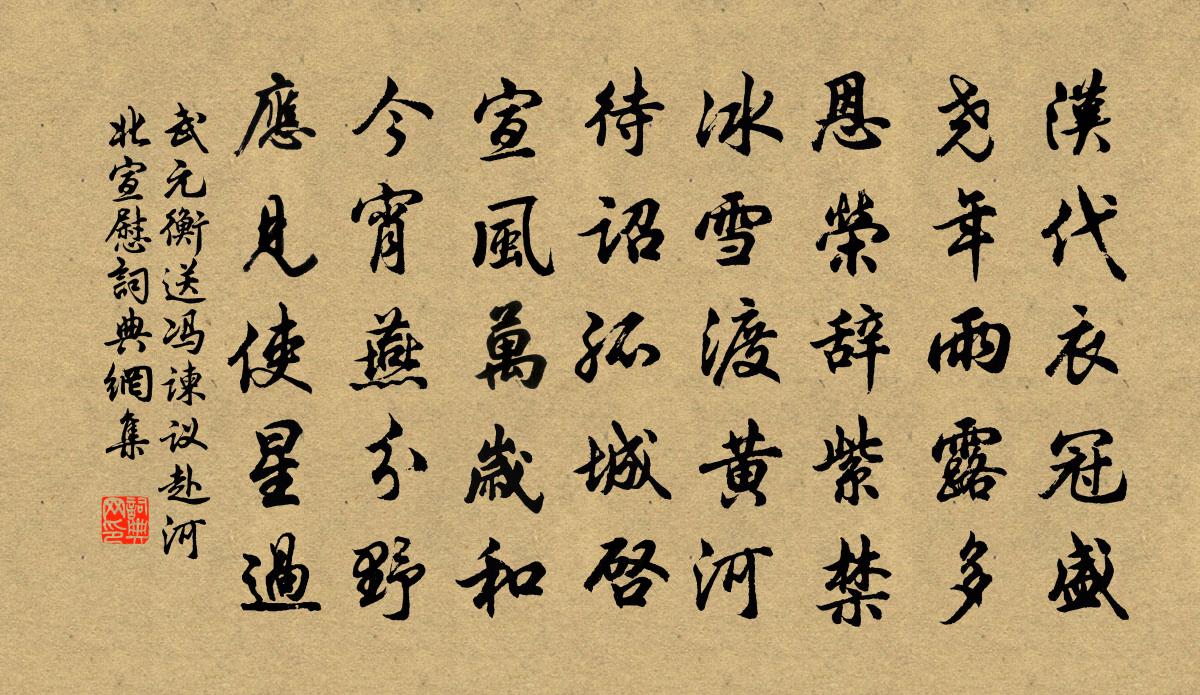 漢代衣冠盛
尧年雨露多
恩榮辞紫禁
冰雪渡黄河
待诏孤城啓
宣風萬歳和
今宵燕分野
應見使星過
武元衡送冯谏议赴河
北宣慰詞典網集
詞典
网印